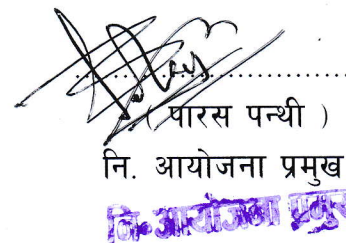 ( पारस पन्थी )
नि. आयोजना प्रमुख
नि. आयोजना प्रमुख